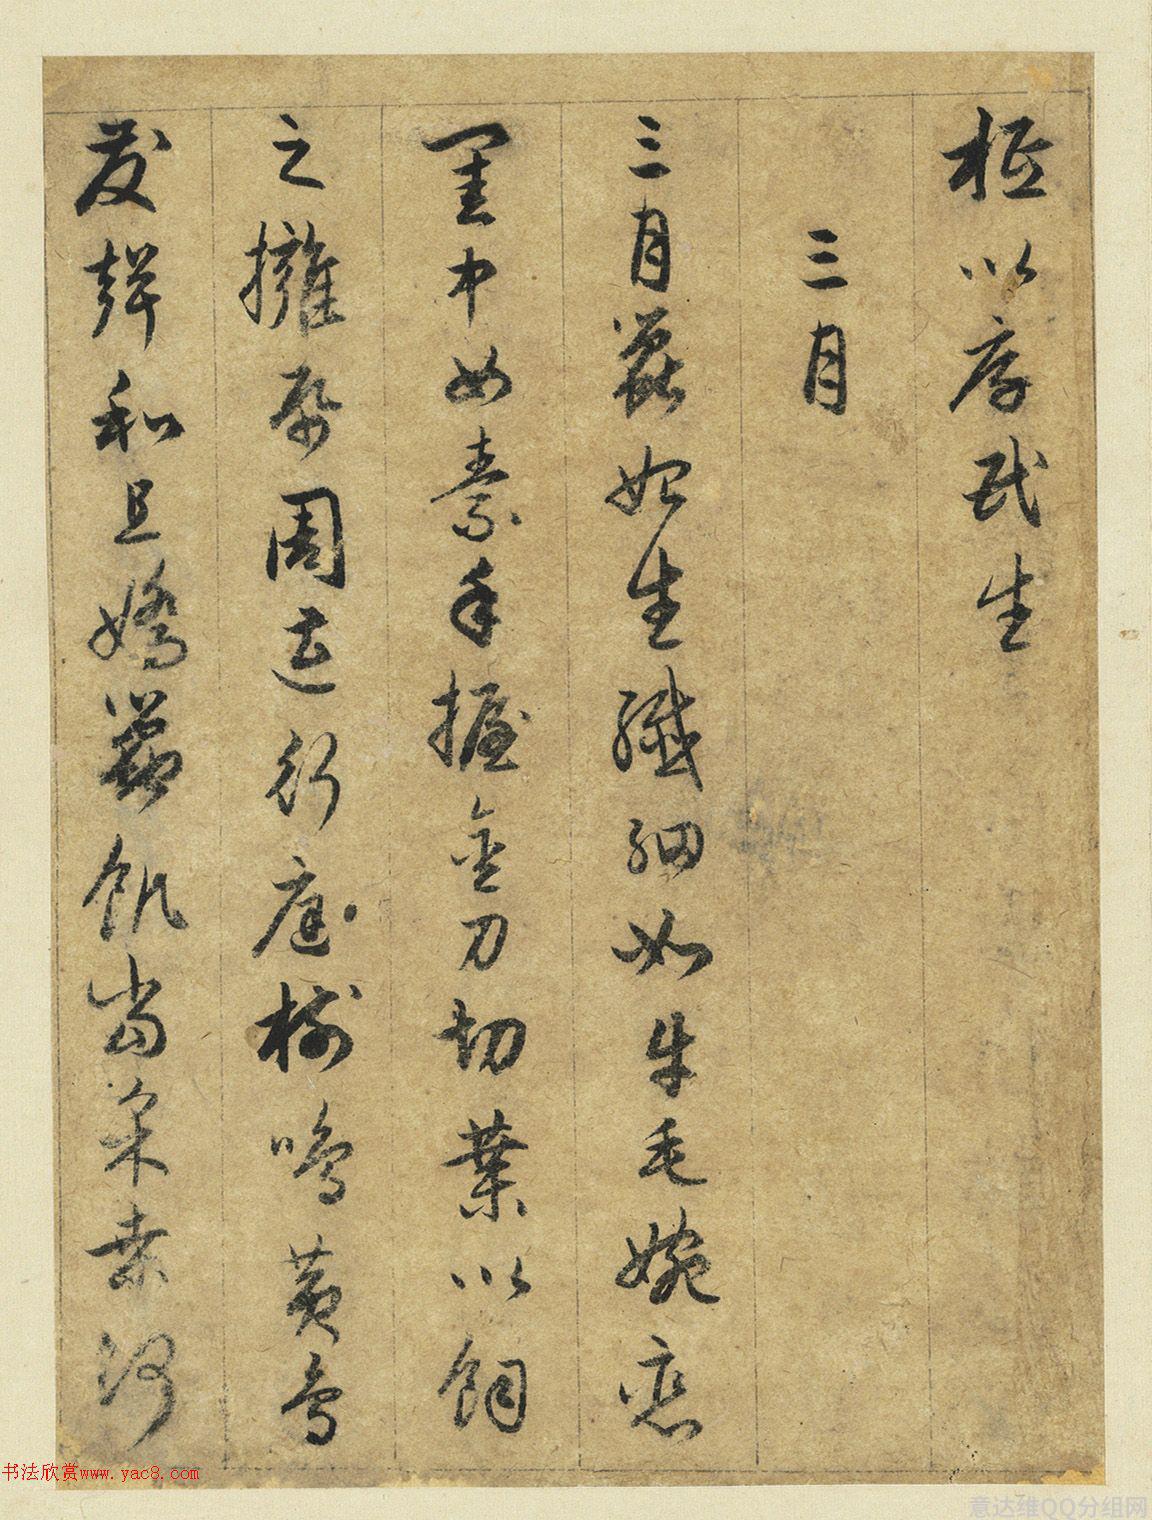 以厚民生
三月
三月蠶始生纖細如牛毛婉戀
閨中女素手握金刀切葉以飼
之擁帋周迊行庭樹鳴黃鳥
發聲和且嬌蠶飢當采桑何
书法欣赏www.yac8.com
意达维QQ分组网